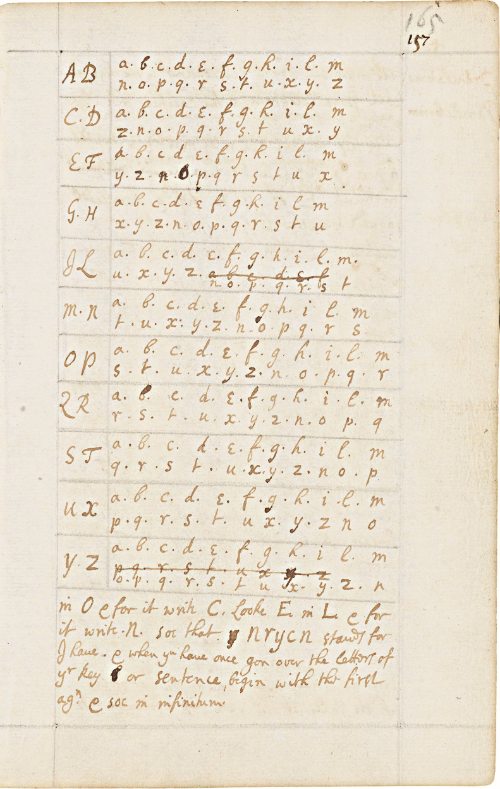 165
157
AB a. b. c. d. e. f. g. h. i. l. m
n. o. p. q. r s. t. u. x. y. z
C.D a. b. c. d. e. f. g. h. i. l. m
z. n. o. p. q. r s. t u x. y
EF a. b. c d e. f. g. h. i l. m
y. z. n o p q r s t u x
G.H a. b. c. d. e f. g. h. i l m
x. y. z. n. o. p. q. r. s t u
JL a. b. c. d. e. f. g. h. i. l. m.
u. x. y. z. a b c d. e f
n o. p. q. r. s t
m.n a. b. c. d. e. f. g. h. i l. m
t. u. x. y. z. n. o. p q. r s
OP a. b. c. d. e. f. g. h. i. l. m
s. t. u. x. y. z. n o. p. q. r
QR a. b c d. e. f. g. h. i. l. m
r. s. t. u x. y z. n. o p. q
ST a. b. c. d. e. f. g. h. i l. m
q. r. s t. u. x. y. z. n o. p
ux a. b. c. d. e. f. g. h. i. l. m
p. q. r. s. t. u x. y. z n o
y.z a. b. c. d. e. f. g. h. i l. m
p q. r. s t u x y. z
o. p. q. r. s. t u x. y. z. n
in O & for it write C. Looke E. in L. & for
it write. N. soe that. y nrycn stands for
J have. & when yu have once gon over the letters of
yr key or sentence, begin with the first
agn & soe in infinitum.